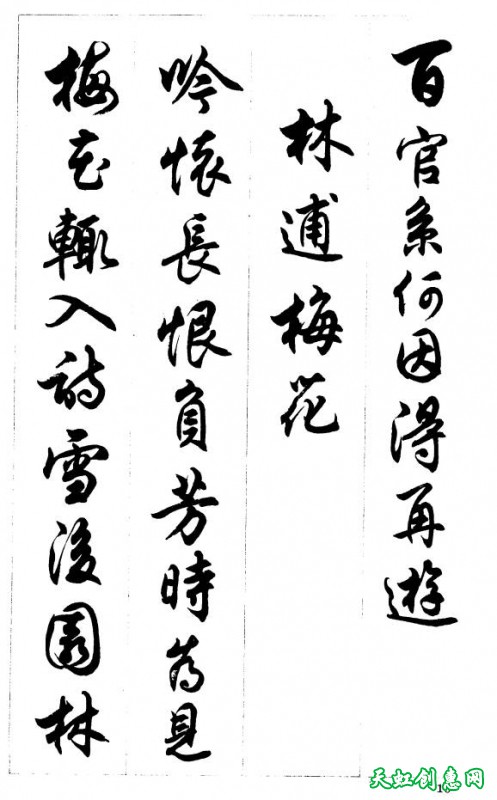 百官系何因得再遊
林逋梅花
吟懷長恨負芳時為見
梅花輙入詩雪後園林
天虹创惠网